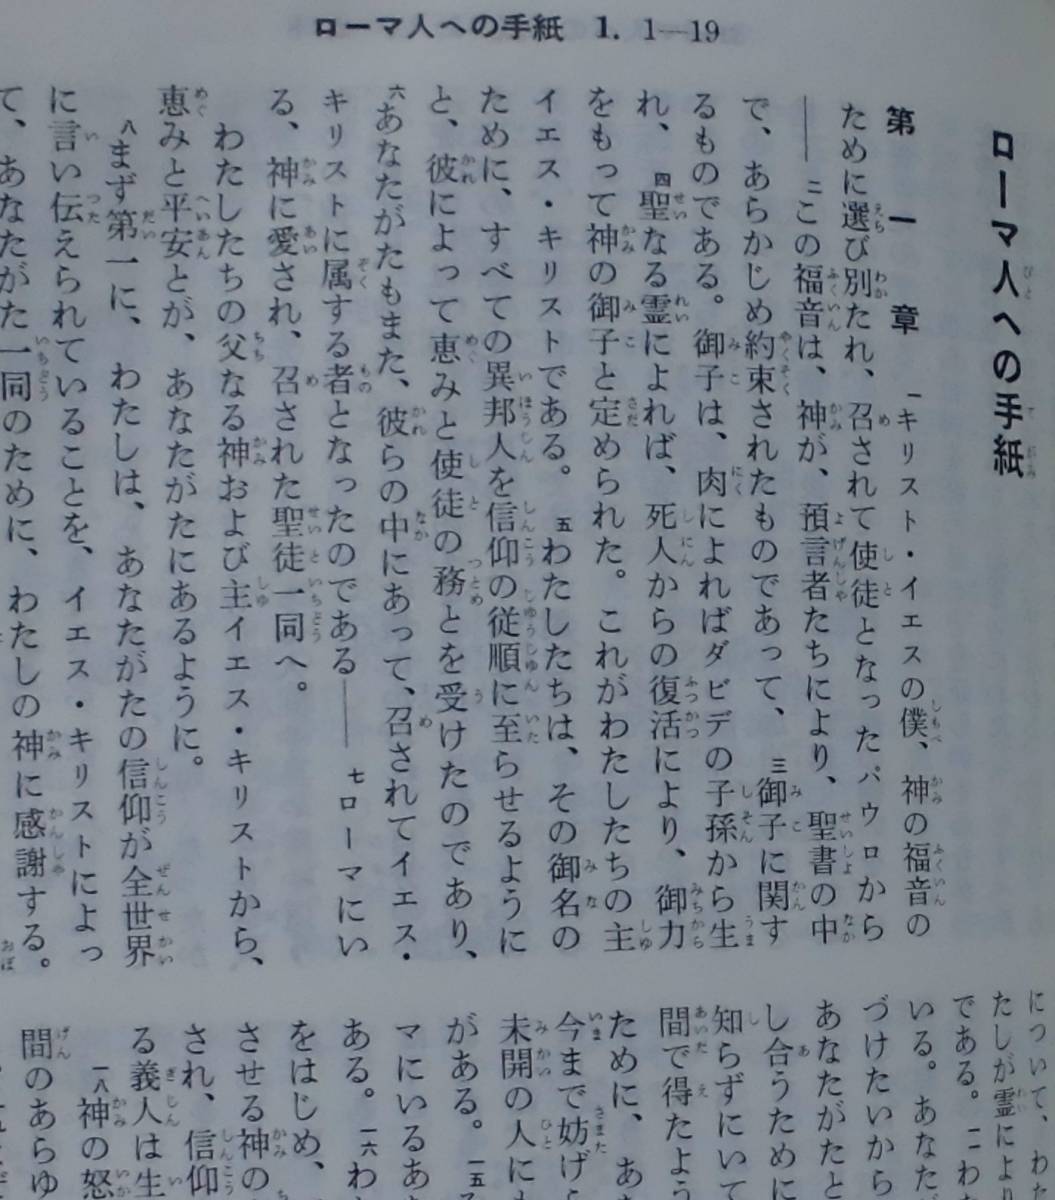 ローマ人への手紙 1. 1―19
ローマ人への手紙
第一章 一キリスト・イエスの僕、神の福音の
ために選び別たれ、召されて使徒となったパウロから
―― 二この福音は、神が、預言者たちにより、聖書の中
で、あらかじめ約束されたものであって、 三御子に関す
るものである。御子は、肉によればダビデの子孫から生
れ、 四聖なる霊によれば、死人からの復活により、御力
をもって神の御子と定められた。これがわたしたちの主
イエス・キリストである。 五わたしたちは、その御名の
ために、すべての異邦人を信仰の従順に至らせるように
と、彼によって恵みと使徒の務とを受けたのであり、
六あなたがたもまた、彼らの中にあって、召されてイエス・
キリストに属する者となったのである―― 七ローマにい
る、神に愛され、召された聖徒一同へ。
わたしたちの父なる神および主イエス・キリストから、
恵みと平安とが、あなたがたにあるように。
八まず第一に、わたしは、あなたがたの信仰が全世界
に言い伝えられていることを、イエス・キリストによっ
て、あなたがた一同のために、わたしの神に感謝する。
について、わた
たしが霊により
である。一一わ
いる。あなた
づけたいから
あなたがたと
し合うために
知らずにいて
間で得たよう
ために、あ
今まで妨げら
未開の人にも
がある。一五
マにいるあ
ある。一六わ
をはじめ、
させる神の
され、信仰
る義人は生
一八神の怒
間のあらゆ